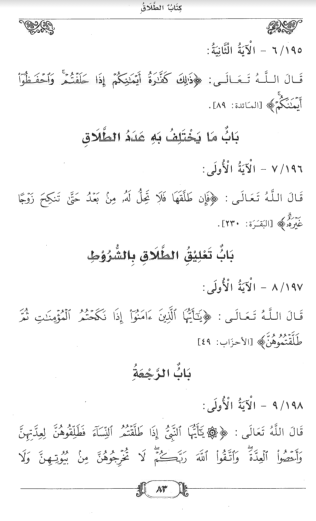 كِتَابُ الطَّلَاقِ
٦/١٩٥ - الْآيَةُ الثَّانِيَةُ:
قَالَ اللَّهُ تَعَالَى: ﴿ذَٰلِكَ كَفَّارَةُ أَيْمَانِكُمْ إِذَا حَلَفْتُمْ ۚ وَاحْفَظُوا
أَيْمَانَكُمْ﴾ [المائدة: ٨٩].
بَابُ مَا يَخْتَلِفُ بِهِ عَدَدُ الطَّلَاقِ
٧/١٩٦ - الْآيَةُ الْأُولَى:
قَالَ اللَّهُ تَعَالَى: ﴿فَإِن طَلَّقَهَا فَلَا تَحِلُّ لَهُ مِن بَعْدُ حَتَّىٰ تَنكِحَ زَوْجًا
غَيْرَهُ ۗ﴾ [البقرة: ٢٣٠].
بَابُ تَعْلِيقِ الطَّلَاقِ بِالشُّرُوطِ
٨/١٩٧ - الْآيَةُ الْأُولَى:
قَالَ اللَّهُ تَعَالَى: ﴿يَا أَيُّهَا الَّذِينَ آمَنُوا إِذَا نَكَحْتُمُ الْمُؤْمِنَاتِ ثُمَّ
طَلَّقْتُمُوهُنَّ﴾ [الأحزاب: ٤٩]
بَابُ الرَّجْعَةِ
٩/١٩٨ - الْآيَةُ الْأُولَى:
قَالَ اللَّهُ تَعَالَى: ﴿۞ يَا أَيُّهَا النَّبِيُّ إِذَا طَلَّقْتُمُ النِّسَاءَ فَطَلِّقُوهُنَّ لِعِدَّتِهِنَّ
وَأَحْصُوا الْعِدَّةَ ۖ وَاتَّقُوا اللَّهَ رَبَّكُمْ ۖ لَا تُخْرِجُوهُنَّ مِن بُيُوتِهِنَّ وَلَا
٨٣